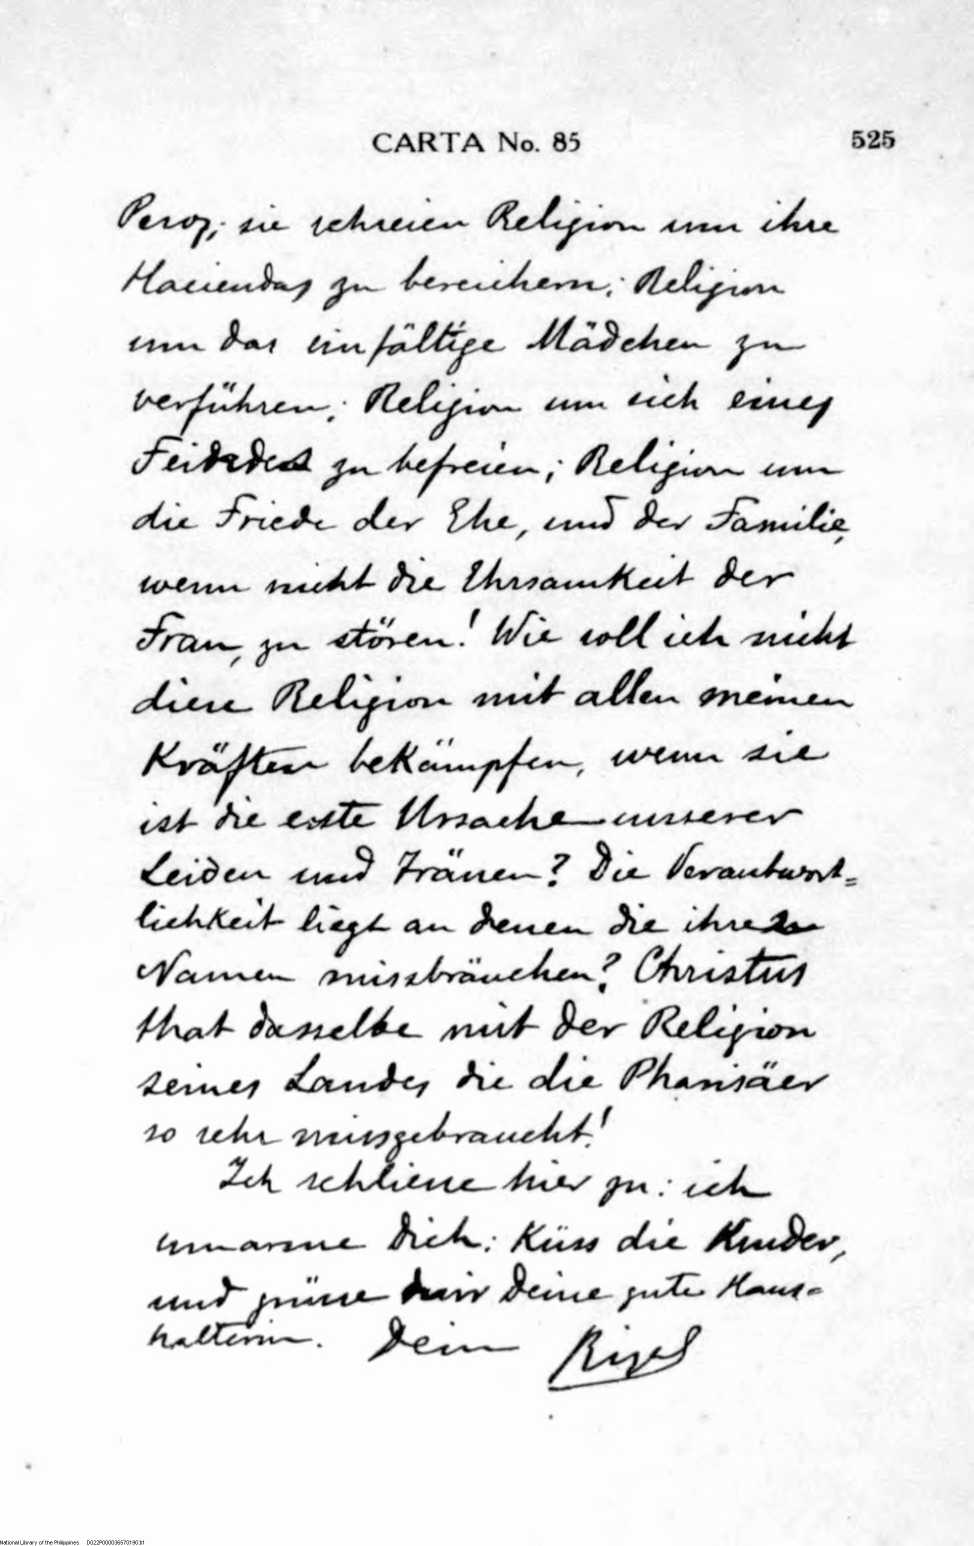 CARTA No. 85 525
Peroz; sie schreien Religion um ihre
Haciendas zu bereichern; Religion
um das einfältige Mädchen zu
verführen; Religion um sich eines
zu befreien; Religion um
die Friede der Ehe, und der Familie,
wenn nicht die Ehrsamkeit der
Frau, zu stören! Wie soll ich nicht
diese Religion mit allen meinen
Kräften bekämpfen, wenn sie
ist die erste Ursache unserer
Leiden und Tränen? Die Verantwort=
lichkeit liegt an denen die ihren
Namen missbräuchen? Christus
that dasselbe mit der Religion
seines Landes die die Pharisäer
so sehr missgebraucht!
Ich schliesse hier zu: ich
umarme Dich: Küss die Kinder,
und grüsse mir Deine gute Haus=
hälterin. Dein Rizal
National Library of the Philippines